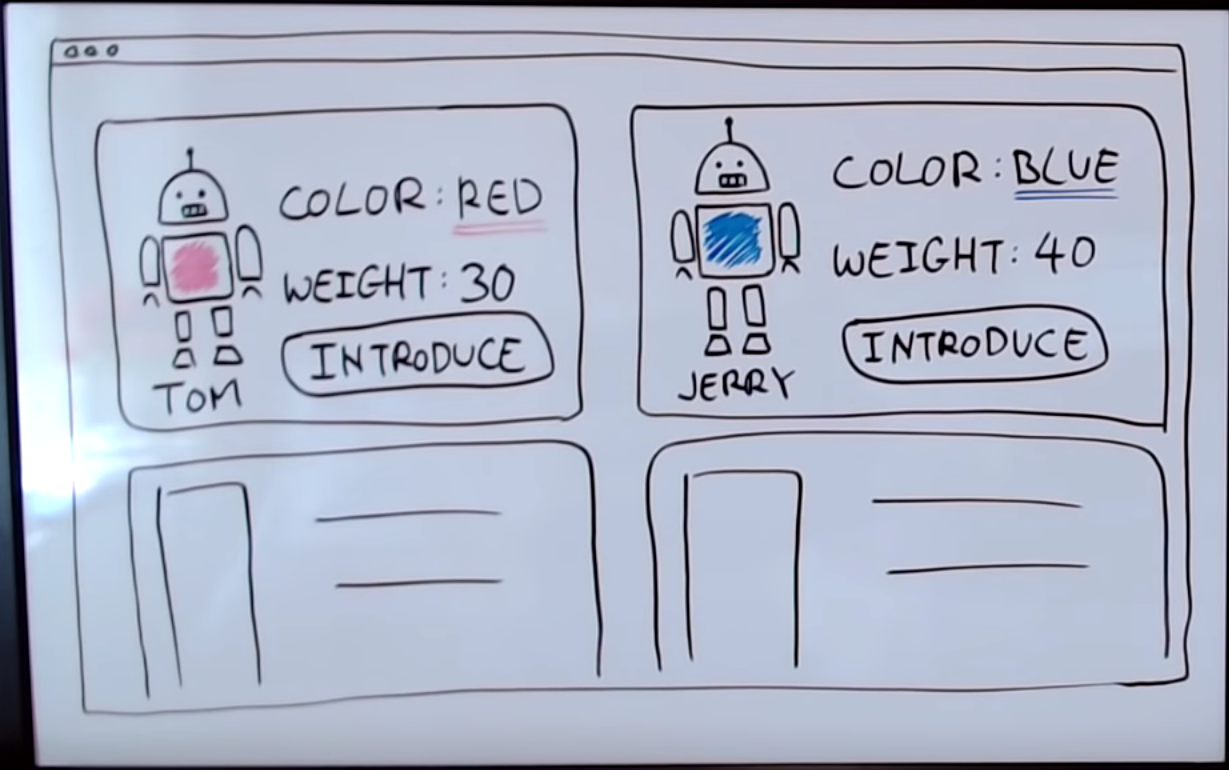 COLOR: RED
WEIGHT: 30
INTRODUCE
TOM
COLOR: BLUE
WEIGHT: 40
INTRODUCE
JERRY